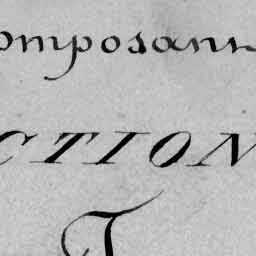 omposann
CTION
T